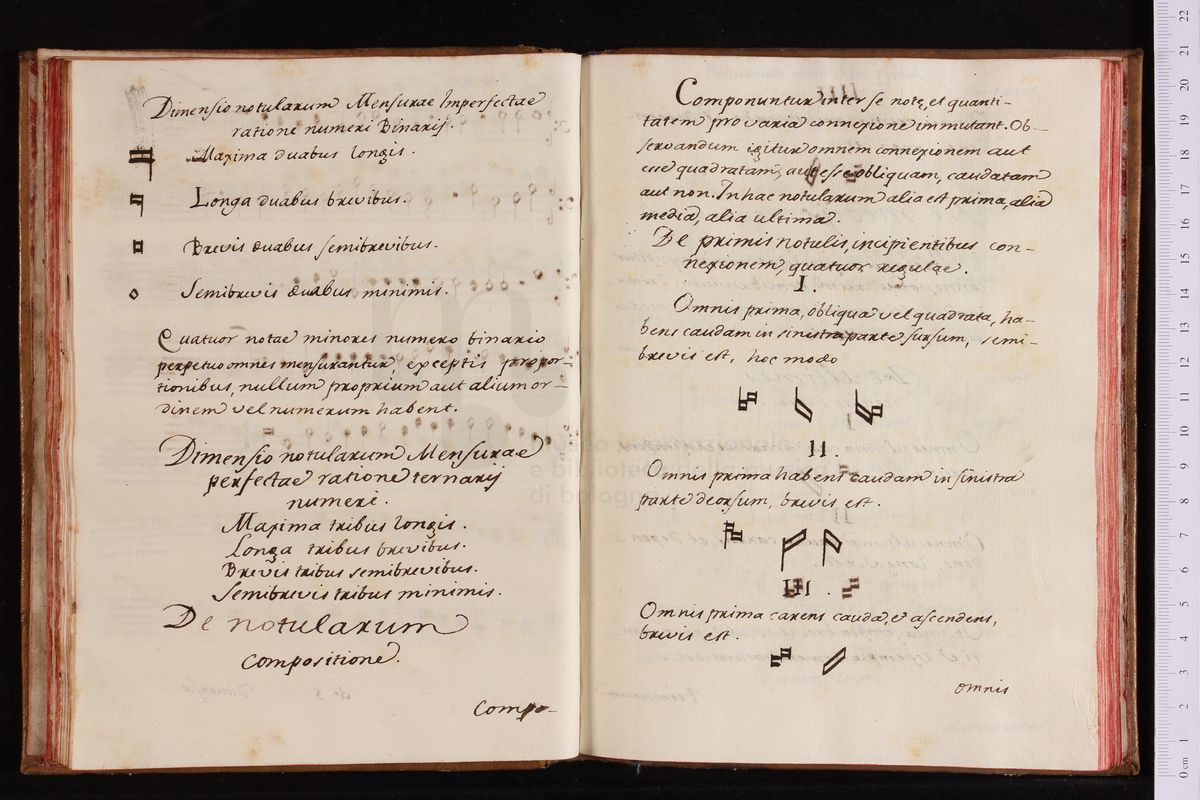 Dimensio notularum Mensurae Imperfectae
ratione numeri Binarij.
Maxima duabus longis.
Longa duabus brevibus.
Brevis duabus semibrevibus.
Semibrevis duabus minimis.
Quatuor notae minores numero binario
perpetuo omnes mensurantur, exceptis propor-
tionibus, nullum proprium aut alium or-
dinem vel numerum habent.
Dimensio notularum Mensurae
perfectae ratione ternarij
numeri.
Maxima tribus longis.
Longa tribus brevibus.
Brevis tribus semibrevibus.
Semibrevis tribus minimis.
De notularum
compositione.
Compo-
Componuntur inter se notę, et quanti-
tatem pro varia connexione immutant. Ob-
servandum igitur omnem connexionem aut
esse quadratam, aut esse obliquam, caudatam
aut non. In hac notularum alia est prima, alia
media, alia ultima.
De primis notulis, incipientibus con-
nexionem, quatuor regulae.
I.
Omnis prima, obliqua vel quadrata, ha-
bens caudam in sinistra parte sursum, semi-
brevis est, hoc modo
II
Omnis prima habens caudam in sinistra
parte deorsum, brevis est.
III.
Omnis prima carens cauda, et ascendens,
brevis est.
Omnis
0 cm 1 2 3 4 5 6 7 8 9 10 11 12 13 14 15 16 17 18 19 20 21 22